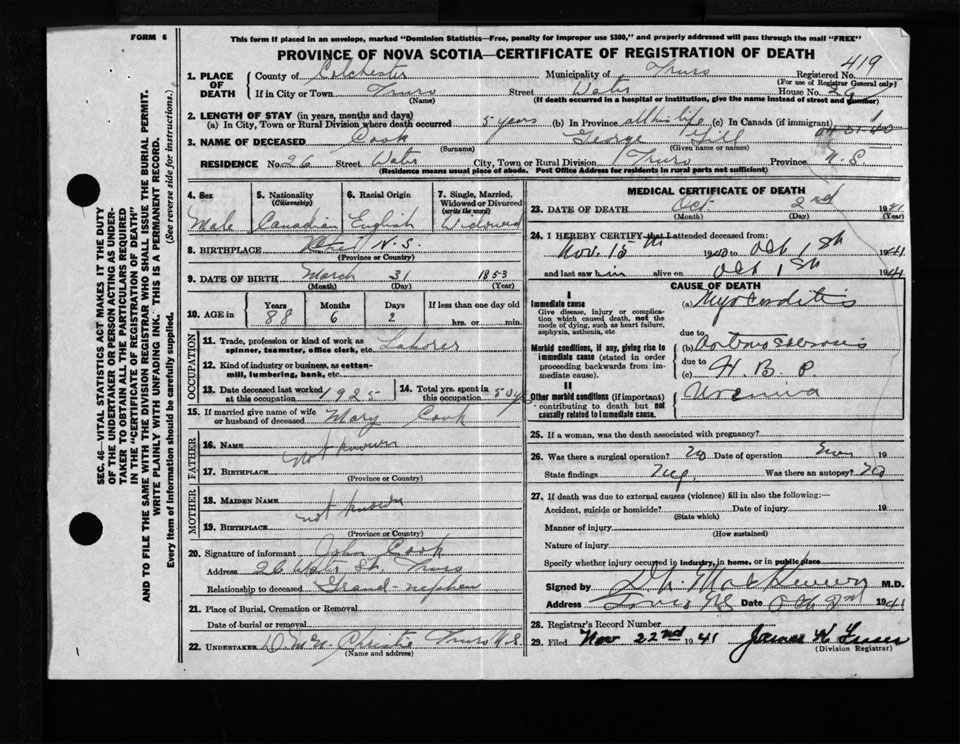 FORM 6
This form if placed in an envelope, marked "Dominion Statistics—Free, penalty for improper use $300," and properly addressed will pass through the mail "FREE"
PROVINCE OF NOVA SCOTIA—CERTIFICATE OF REGISTRATION OF DEATH
419
1. PLACE OF DEATH
County of Colchester Municipality of Truro Registered No.
(For use of Registrar General only)
If in City or Town Truro Street Water House No. 26
(Name) (If death occurred in a hospital or institution, give the name instead of street and number)
2. LENGTH OF STAY (in years, months and days)
(a) In City, Town or Rural Division where death occurred 5 years (b) In Province all his life (c) In Canada (if immigrant)
3. NAME OF DECEASED Cook George
(Surname) (Given name or names)
RESIDENCE No. 26 Street Water City, Town or Rural Division Truro Province N.S.
(Residence means usual place of abode. Post Office Address for residents in rural parts not sufficient)
4. Sex Male
5. Nationality (Citizenship) Canadian
6. Racial Origin English
7. Single, Married, Widowed or Divorced (write the word) Widowed
8. BIRTHPLACE N.S.
(Province or Country)
9. DATE OF BIRTH March 31 1853
(Month) (Day) (Year)
10. AGE in Years Months Days If less than one day old
88 6 2 hrs. or min.
OCCUPATION
11. Trade, profession or kind of work as spinner, teamster, office clerk, etc. Laborer
12. Kind of industry or business, as cotton-mill, lumbering, bank, etc.
13. Date deceased last worked at this occupation 1925
14. Total yrs. spent in this occupation 50 yrs
15. If married give name of wife or husband of deceased Mary Cook
FATHER
16. NAME not known
17. BIRTHPLACE
(Province or Country)
MOTHER
18. MAIDEN NAME not known
19. BIRTHPLACE
(Province or Country)
20. Signature of informant John Cook
Address 26 Water St. Truro
Relationship to deceased Grand-nephew
21. Place of Burial, Cremation or Removal
Date of burial or removal
22. UNDERTAKER Christie Truro N.S.
(Name and address)
MEDICAL CERTIFICATE OF DEATH
23. DATE OF DEATH Oct 2nd 1941
(Month) (Day) (Year)
24. I HEREBY CERTIFY that I attended deceased from:
Nov. 15th 1940 to Oct 1st 1941
and last saw him alive on Oct 1st 1941
CAUSE OF DEATH
I
Immediate cause
Give disease, injury or complication which caused death, not the mode of dying, such as heart failure, asphyxia, asthenia, etc
(a) Myocarditis
due to
Morbid conditions, if any, giving rise to immediate cause (stated in order proceeding backwards from immediate cause).
(b)
due to
(c) H. B. P.
II
Other morbid conditions (if important) contributing to death but not causally related to immediate cause.
Uremia
25. If a woman, was the death associated with pregnancy?
26. Was there a surgical operation? No Date of operation 19
State findings Neg Was there an autopsy? No
27. If death was due to external causes (violence) fill in also the following:—
Accident, suicide or homicide? Date of injury 19
(State which)
Manner of injury
(How sustained)
Nature of injury
Specify whether injury occurred in industry, in home, or in public place
Signed by M.D.
Address Truro NS Date Oct 1941
28. Registrar's Record Number
29. Filed Nov 22nd 1941 James K
(Division Registrar)
SEC. 46—VITAL STATISTICS ACT MAKES IT THE DUTY
OF THE UNDERTAKER OR PERSON ACTING AS UNDER-
TAKER TO OBTAIN ALL THE PARTICULARS REQUIRED
IN THE "CERTIFICATE OF REGISTRATION OF DEATH"
AND TO FILE THE SAME WITH THE DIVISION REGISTRAR WHO SHALL ISSUE THE BURIAL PERMIT.
WRITE PLAINLY WITH UNFADING INK. THIS IS A PERMANENT RECORD.
Every item of information should be carefully supplied. (See reverse side for instructions.)